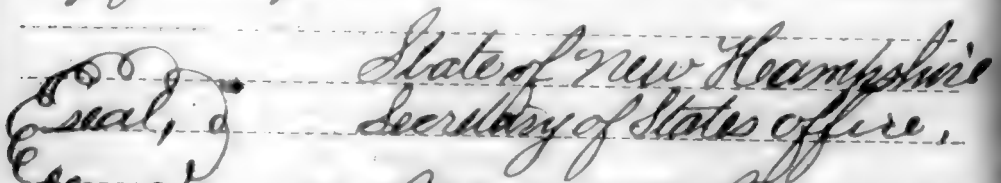 State of New Hampshire
seal, Secretary of States office.